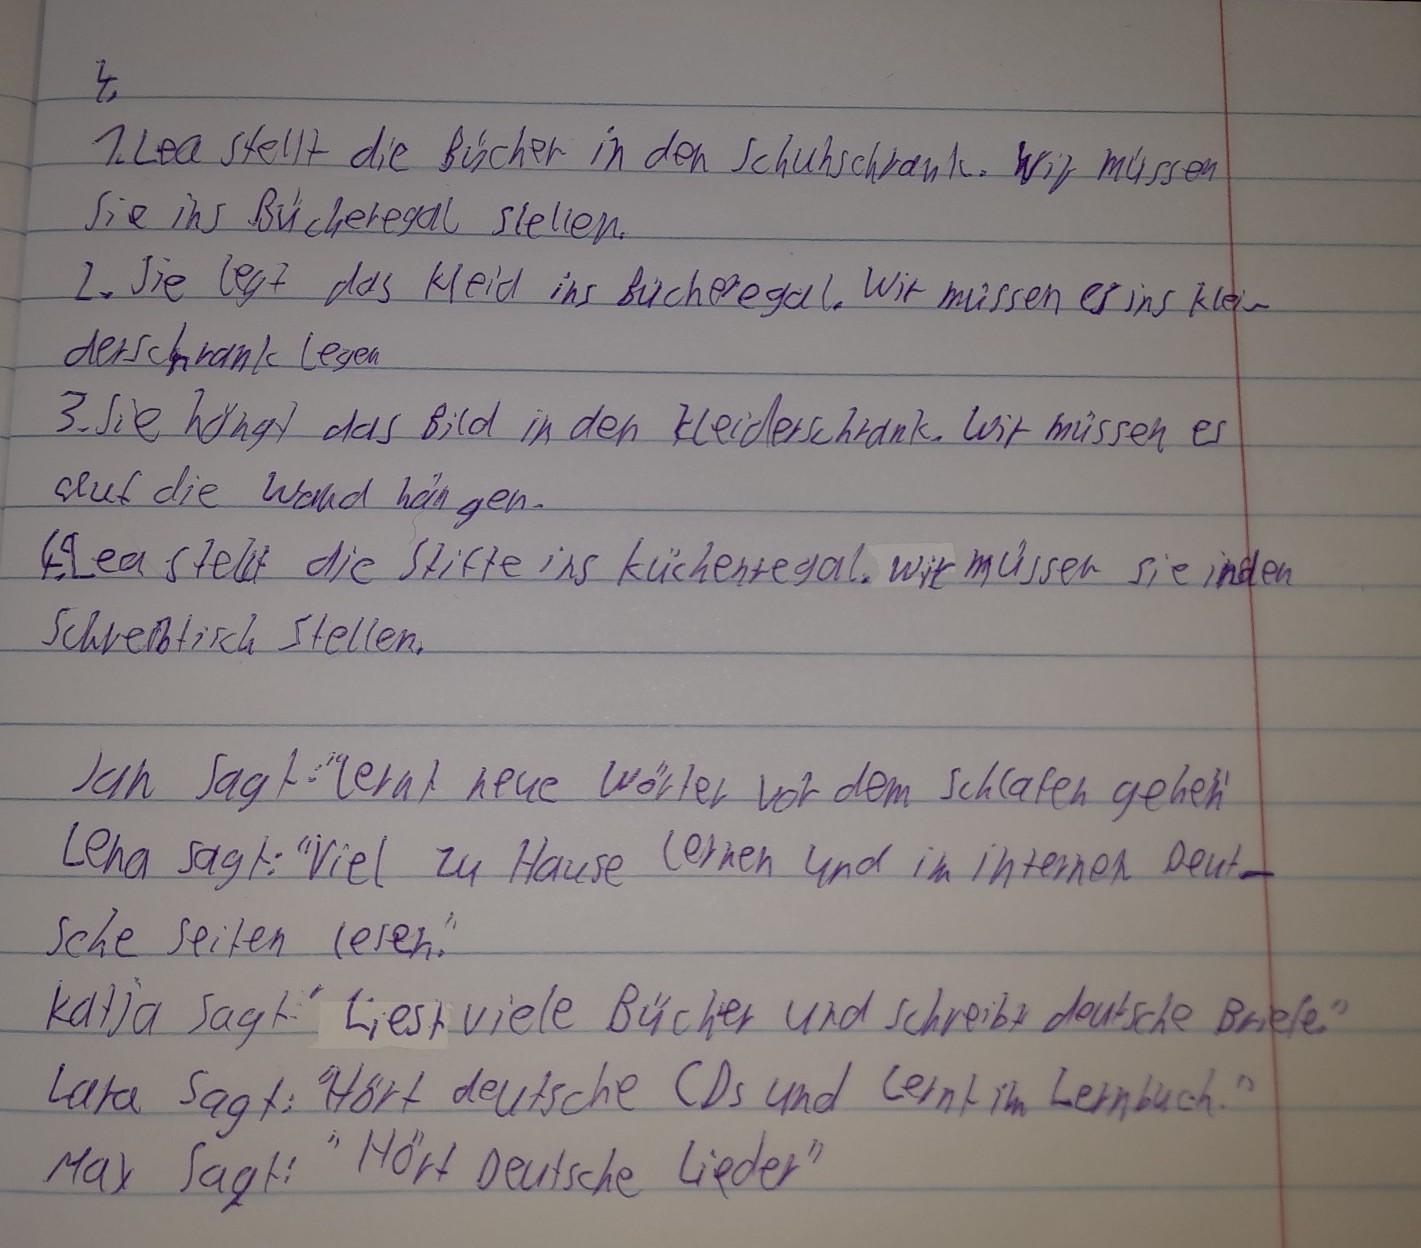 4.
1. Lea stellt die Bücher in den Schuhschrank. Wir müssen
Sie ins Bücheregal stellen.
2. Sie legt das Kleid ins Bücheregal. Wir müssen es ins Klei-
derschrank legen
3. Sie hängt das Bild in den Kleiderschrank. Wir müssen es
auf die Wand hängen.
4. Lea stellt die Stifte ins Küchenregal. Wir müssen sie in den
Schreibtisch stellen.
Jan sagt: "Lernt neue Wörter vor dem Schlafen gehen"
Lena sagt: "Viel zu Hause lernen und im internen Deut-
sche Seiten lesen."
Katja sagt: "Liest viele Bücher und schreibt deutsche Briefe."
Lara sagt: "Hört deutsche CDs und Lernt im Lernbuch."
Max sagt: "Hört Deutsche Lieder"